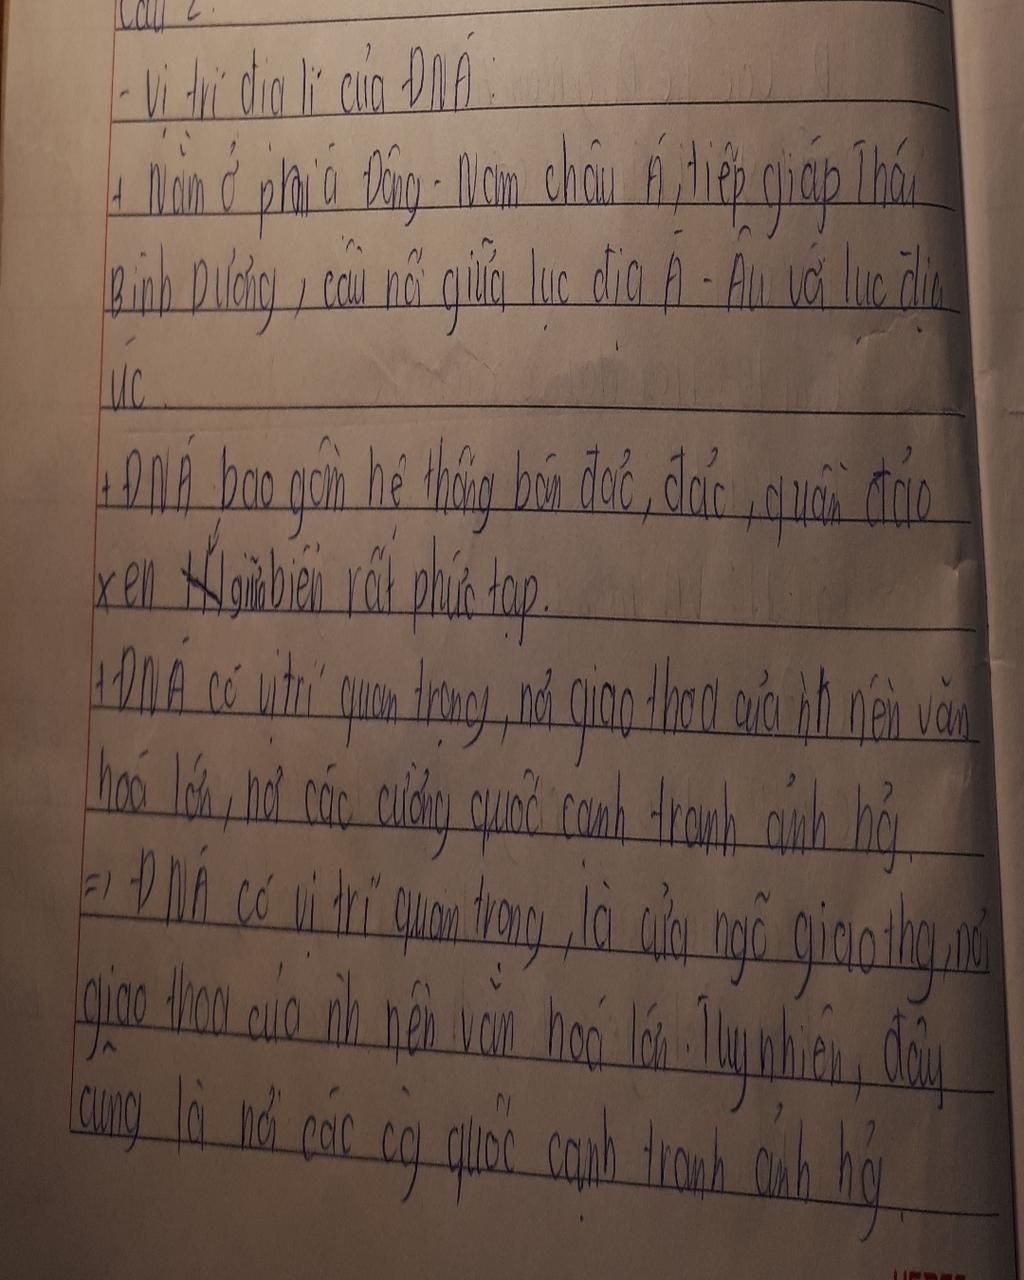 Câu 2:
- Vị trí địa lí của ĐNÁ:
+ Nằm ở phía Đông - Nam châu Á, tiếp giáp Thái
Bình Dương, cầu nối giữa lục địa Á - Âu và lục địa
Úc
+ ĐNÁ bao gồm hệ thống bán đảo, đảo, quần đảo
xen giữa biển rất phức tạp.
+ ĐNÁ có vị trí quan trọng, nơi giao thoa của nh nền văn
hoá lớn, nơi các cường quốc cạnh tranh ảnh hg.
=> ĐNÁ có vị trí quan trọng, là cửa ngõ giao thg, nơi
giao thoa của nh nền văn hoá lớn. Tuy nhiên, đây
cũng là nơi các cg quốc cạnh tranh ảnh hg.